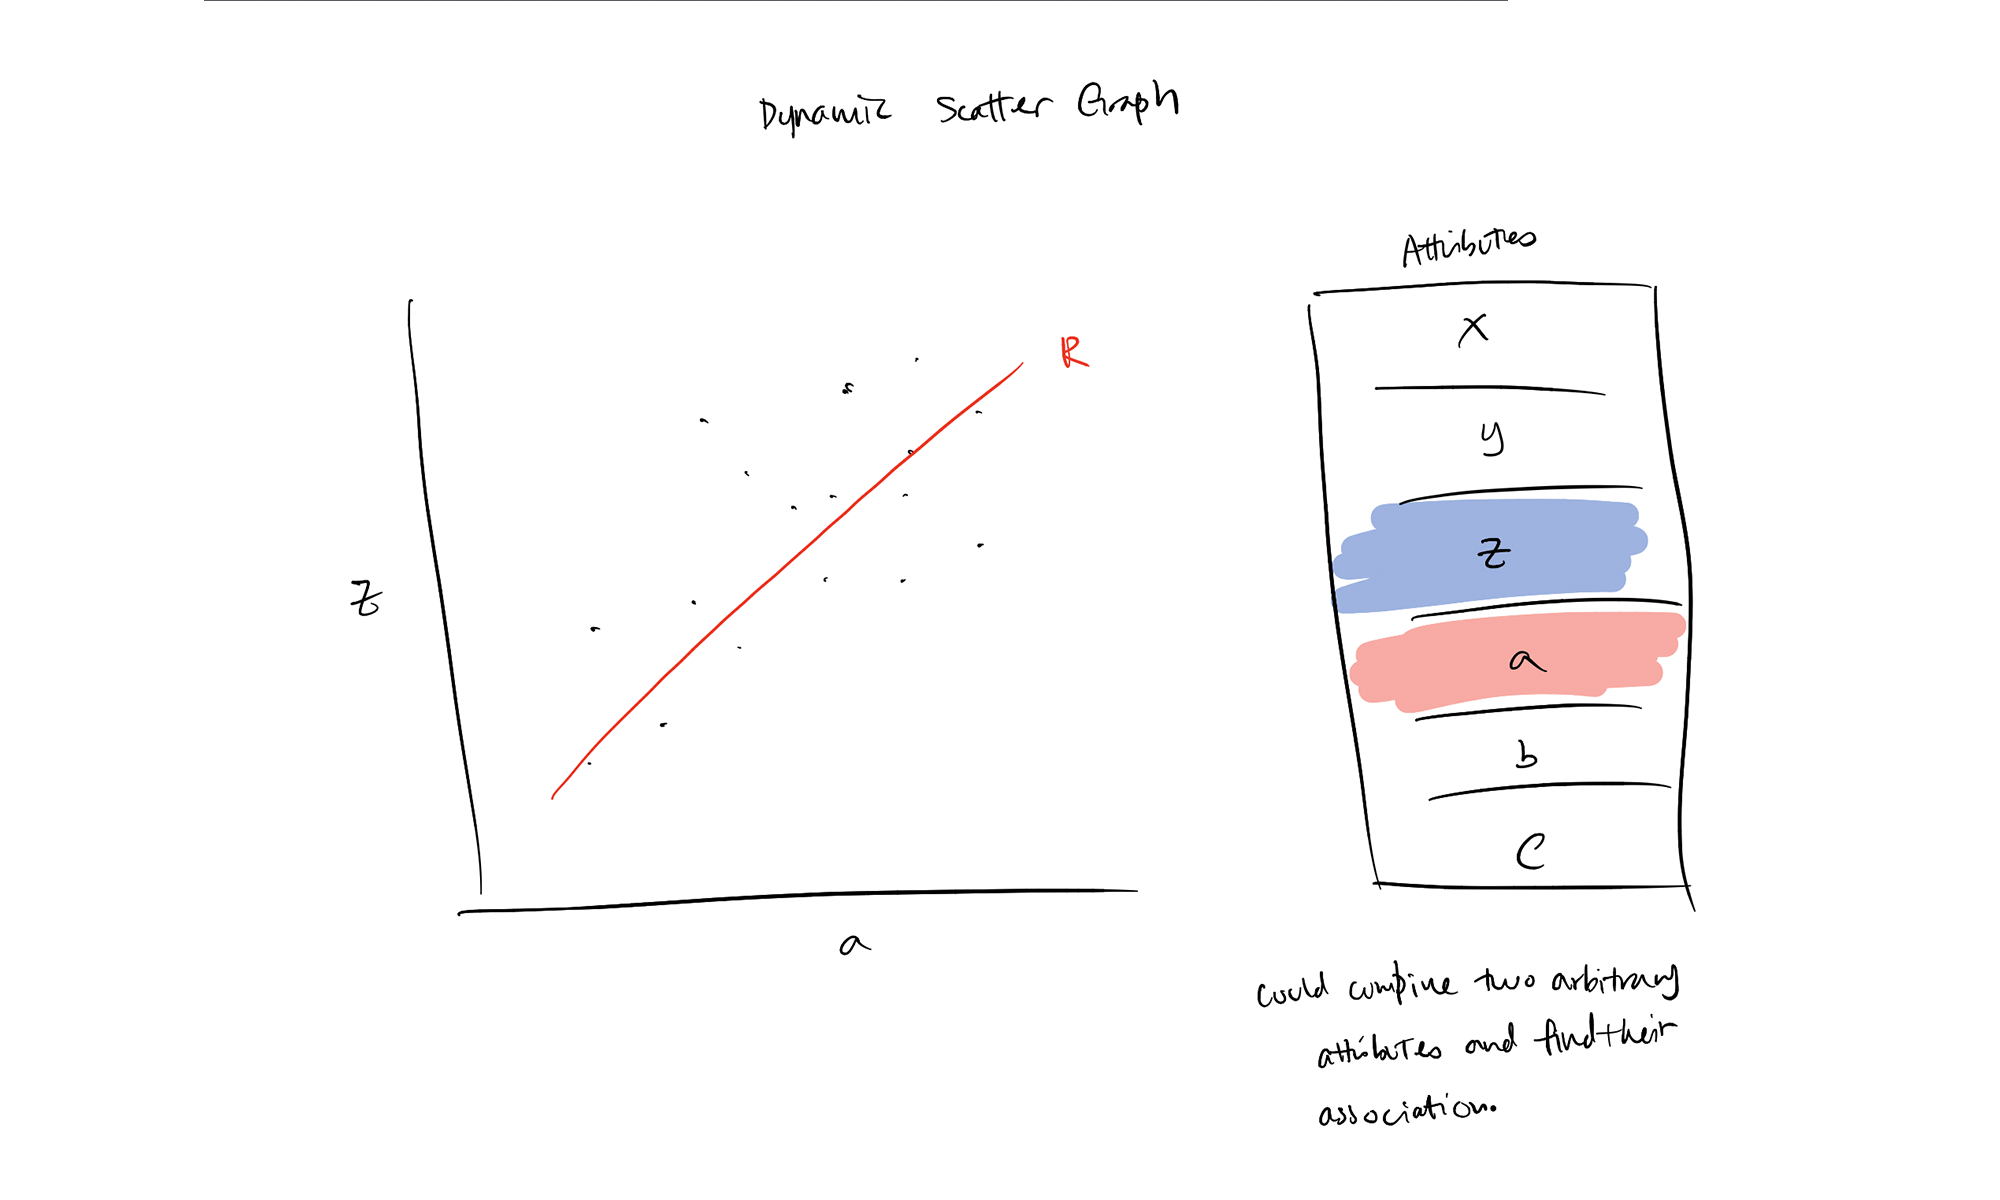 Dynamic Scatter Graph
Attributes
x
y
z
a
b
c
R
z
a
could combine two arbitrary
attributes and find their
association.